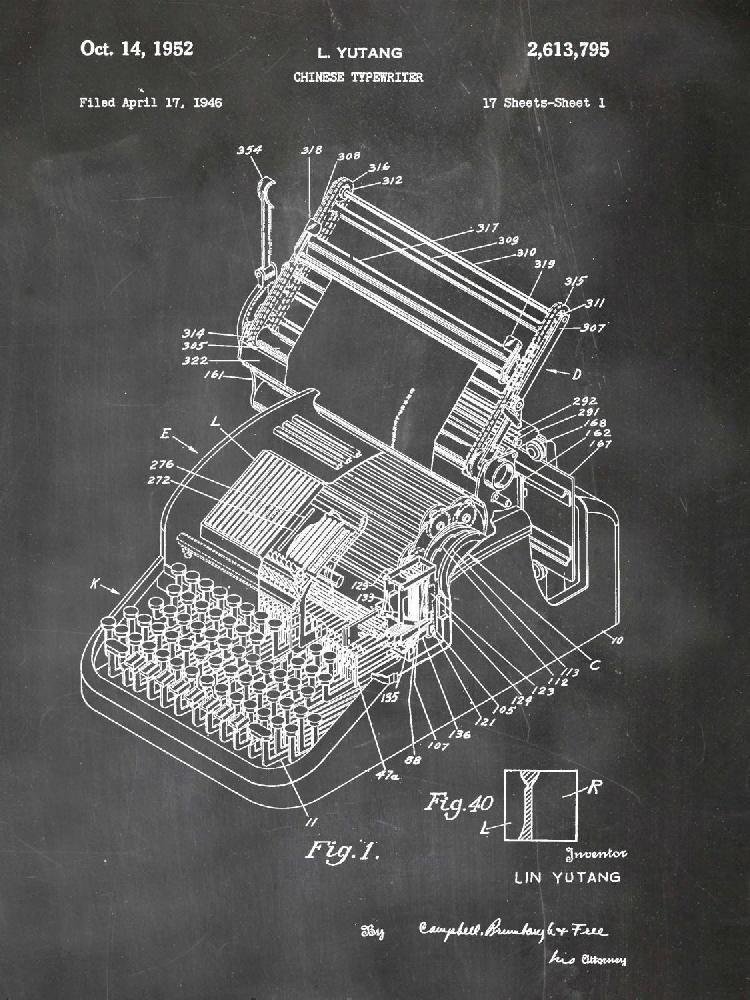 Oct. 14, 1952
L. YUTANG
2,613,795
CHINESE TYPEWRITER
Filed April 17, 1946
17 Sheets-Sheet 1
354
318
308
316
312
317
309
310
319
315
311
307
314
305
322
161
D
292
291
168
162
167
E
L
276
272
K
125
133
10
C
113
112
123
124
105
121
136
107
88
135
47a
11
Fig. 1.
Fig. 40
R
L
Inventor
LIN YUTANG
By Campbell, Brumbaugh & Free
his Attorneys